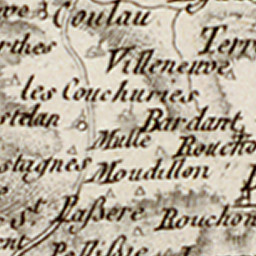 Coulau
Terr
rthes
Villeneuve
les Couchuries
stelan
Bardant
Mulle
Roucho
stagnes
Moudillon
St Paßere
Rouchon
ent